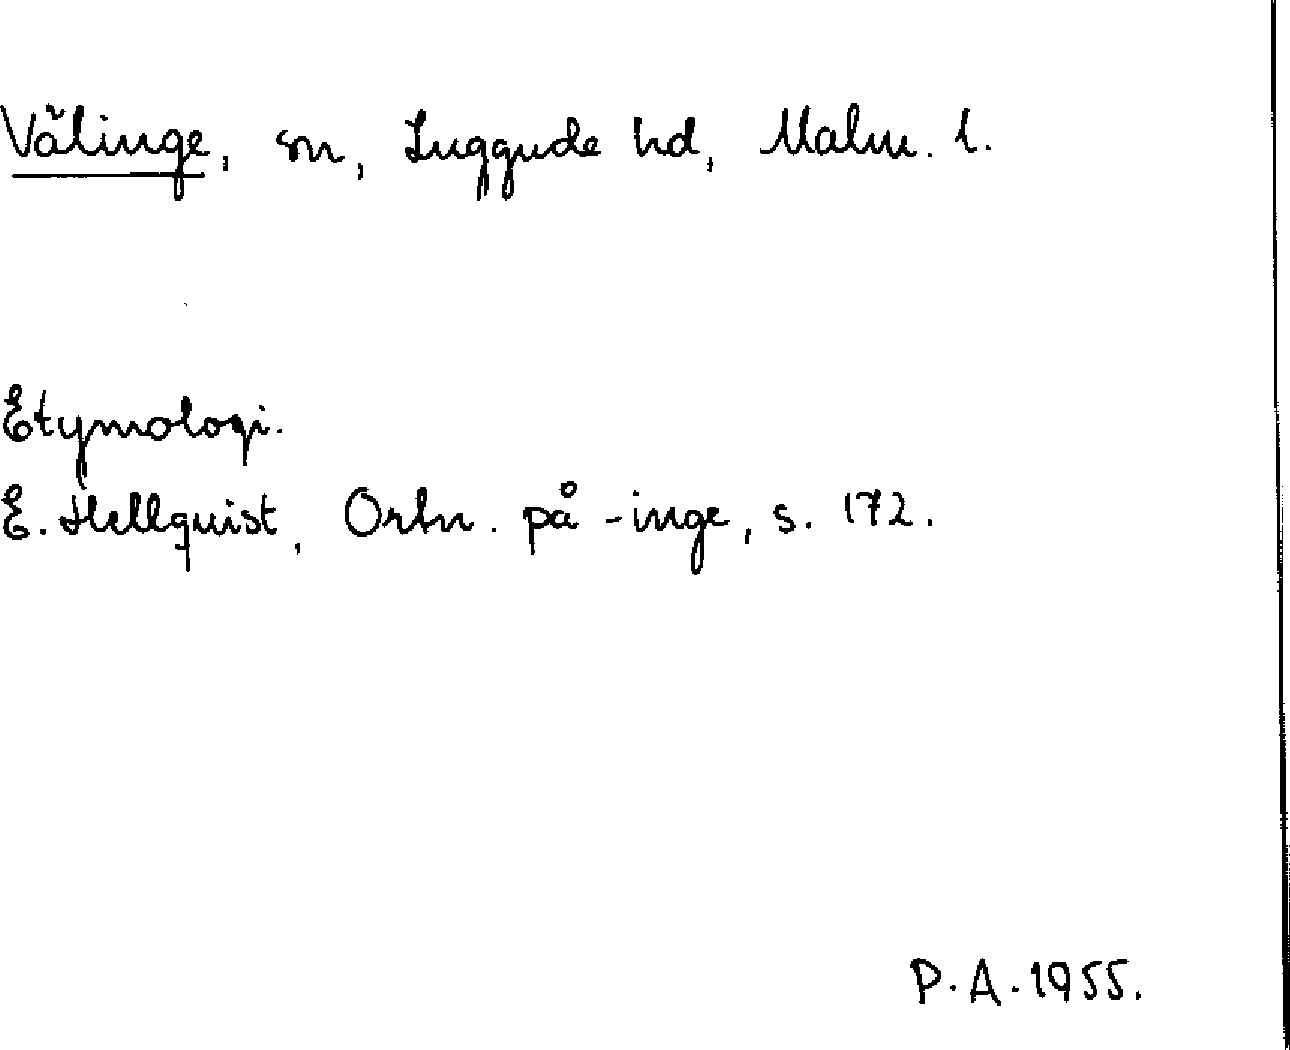 Välinge, sn, Luggude hd, Malm. l.
Etymologi.
E. Hellquist, Ortn. på -inge, s. 172.
P.A. 1955.